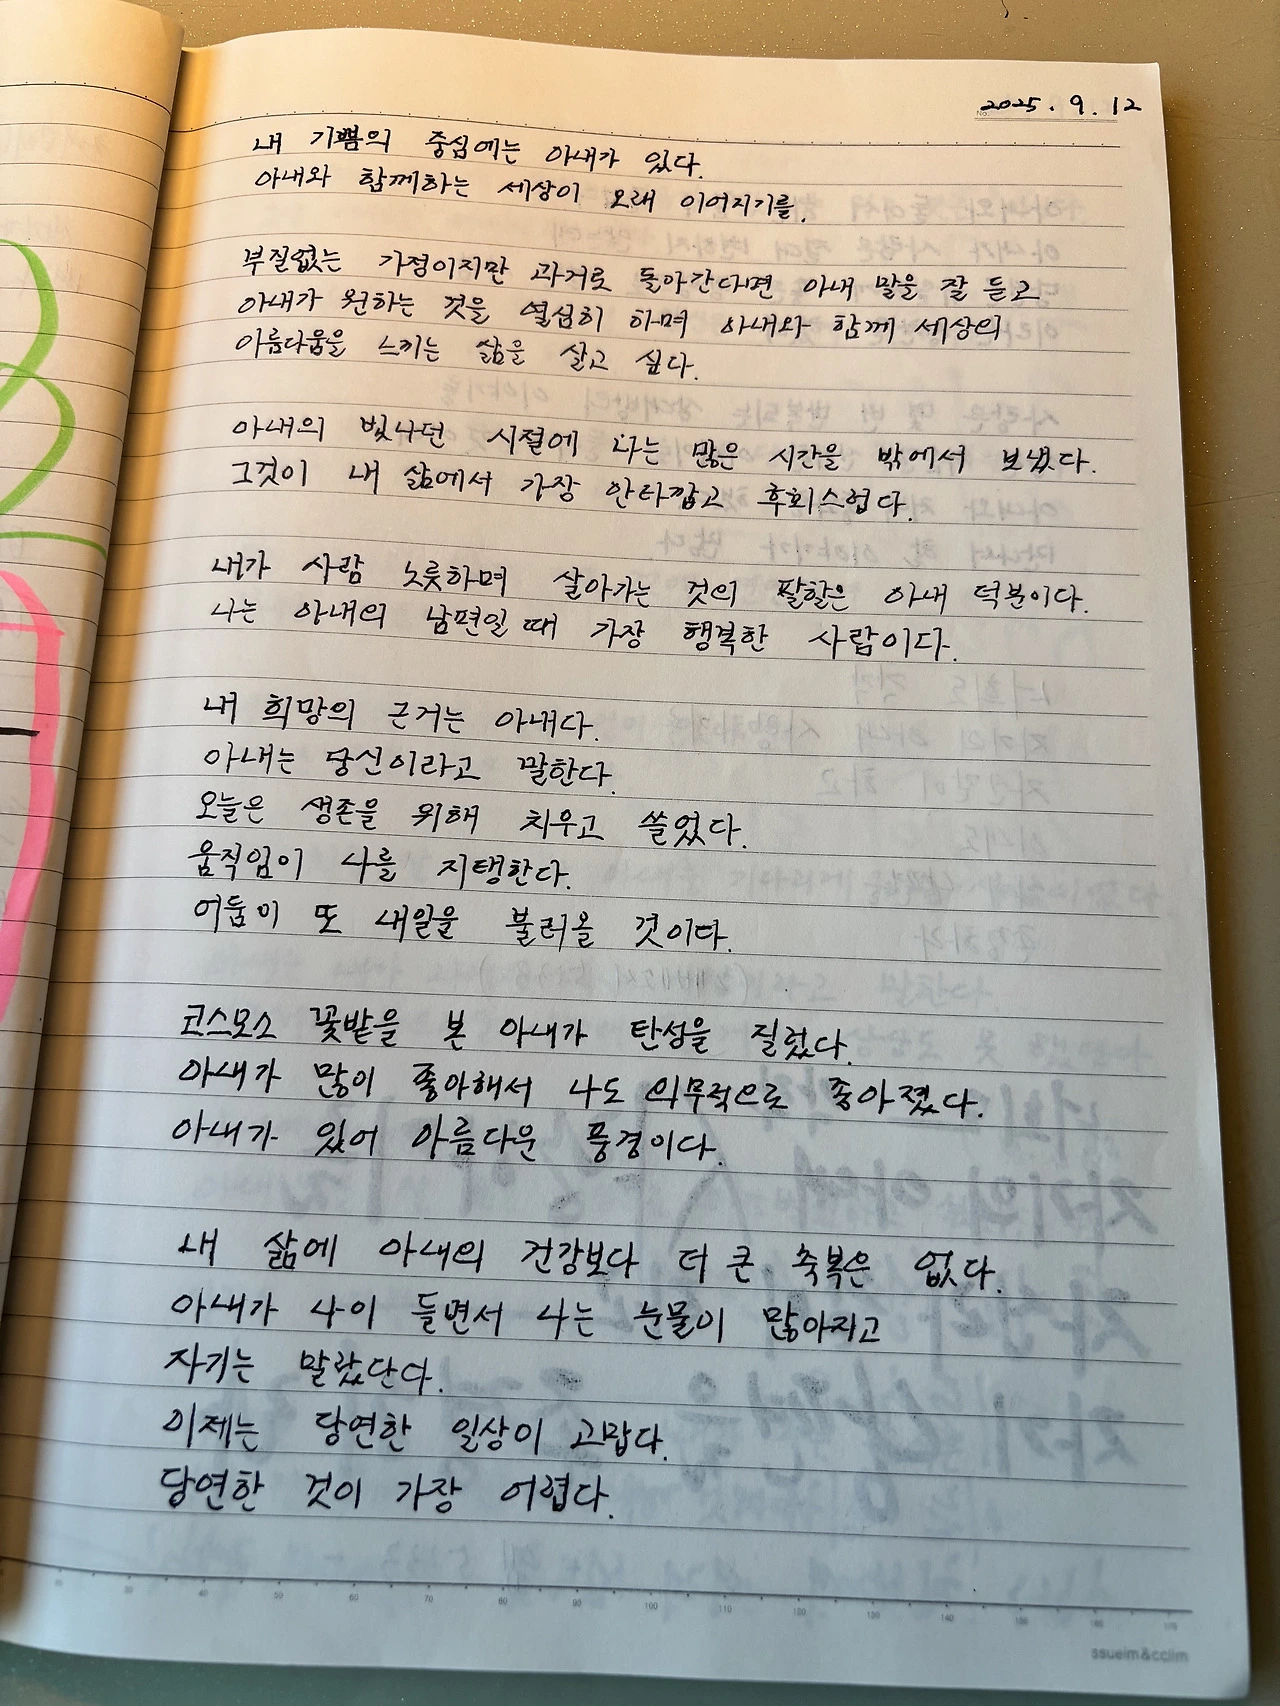 2025. 9. 12
내 기쁨의 중심에는 아내가 있다.
아내와 함께하는 세상이 오래 이어지기를.
부질없는 가정이지만 과거로 돌아간다면 아내 말을 잘 듣고
아내가 원하는 것을 열심히 하며 아내와 함께 세상의
아름다움을 느끼는 삶을 살고 싶다.
아내의 빛나던 시절에 나는 많은 시간을 밖에서 보냈다.
그것이 내 삶에서 가장 안타깝고 후회스럽다.
내가 사람 노릇하며 살아가는 것의 팔할은 아내 덕분이다.
나는 아내의 남편일 때 가장 행복한 사람이다.
내 희망의 근거는 아내다.
아내는 당신이라고 말한다.
오늘은 생존을 위해 치우고 쓸었다.
움직임이 나를 지탱한다.
어둠이 또 내일을 불러올 것이다.
코스모스 꽃밭을 본 아내가 탄성을 질렀다.
아내가 많이 좋아해서 나도 의무적으로 좋아졌다.
아내가 있어 아름다운 풍경이다.
내 삶에 아내의 건강보다 더 큰 축복은 없다.
아내가 나이 들면서 나는 눈물이 많아지고
자기는 말랐단다.
이제는 당연한 일상이 고맙다.
당연한 것이 가장 어렵다.
ssueim&cclim